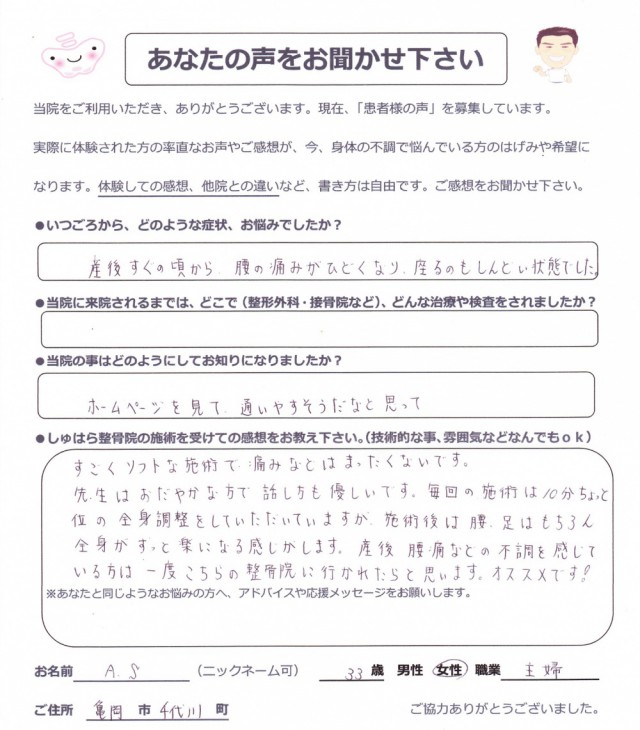 あなたの声をお聞かせ下さい
当院をご利用いただき、ありがとうございます。現在、「患者様の声」を募集しています。
実際に体験された方の率直なお声やご感想が、今、身体の不調で悩んでいる方のはげみや希望に
なります。体験しての感想、他院との違いなど、書き方は自由です。ご感想をお聞かせ下さい。
●いつごろから、どのような症状、お悩みでしたか？
産後すぐの頃から、腰の痛みがひどくなり、座るのもしんどい状態でした。
●当院に来院されるまでは、どこで（整形外科・接骨院など）、どんな治療や検査をされましたか？
●当院の事はどのようにしてお知りになりましたか？
ホームページを見て、通いやすそうだなと思って
●しゅはら整骨院の施術を受けての感想をお教え下さい。（技術的な事、雰囲気などなんでもｏｋ）
すごくソフトな施術で、痛みなどはまったくないです。
先生はおだやかな方で話し方も優しいです。毎回の施術は10分ちょっと
位の全身調整をしていただいていますが、施術後は腰、足はもちろん
全身がすっと楽になる感じがします。産後、腰痛などの不調を感じて
いる方は一度こちらの整骨院に行かれたらと思います。オススメです！
※あなたと同じようなお悩みの方へ、アドバイスや応援メッセージをお願いします。
お名前 A.S （ニックネーム可） 33 歳 男性 女性 職業 主婦
ご住所 亀岡 市 千代川 町 ご協力ありがとうございました。